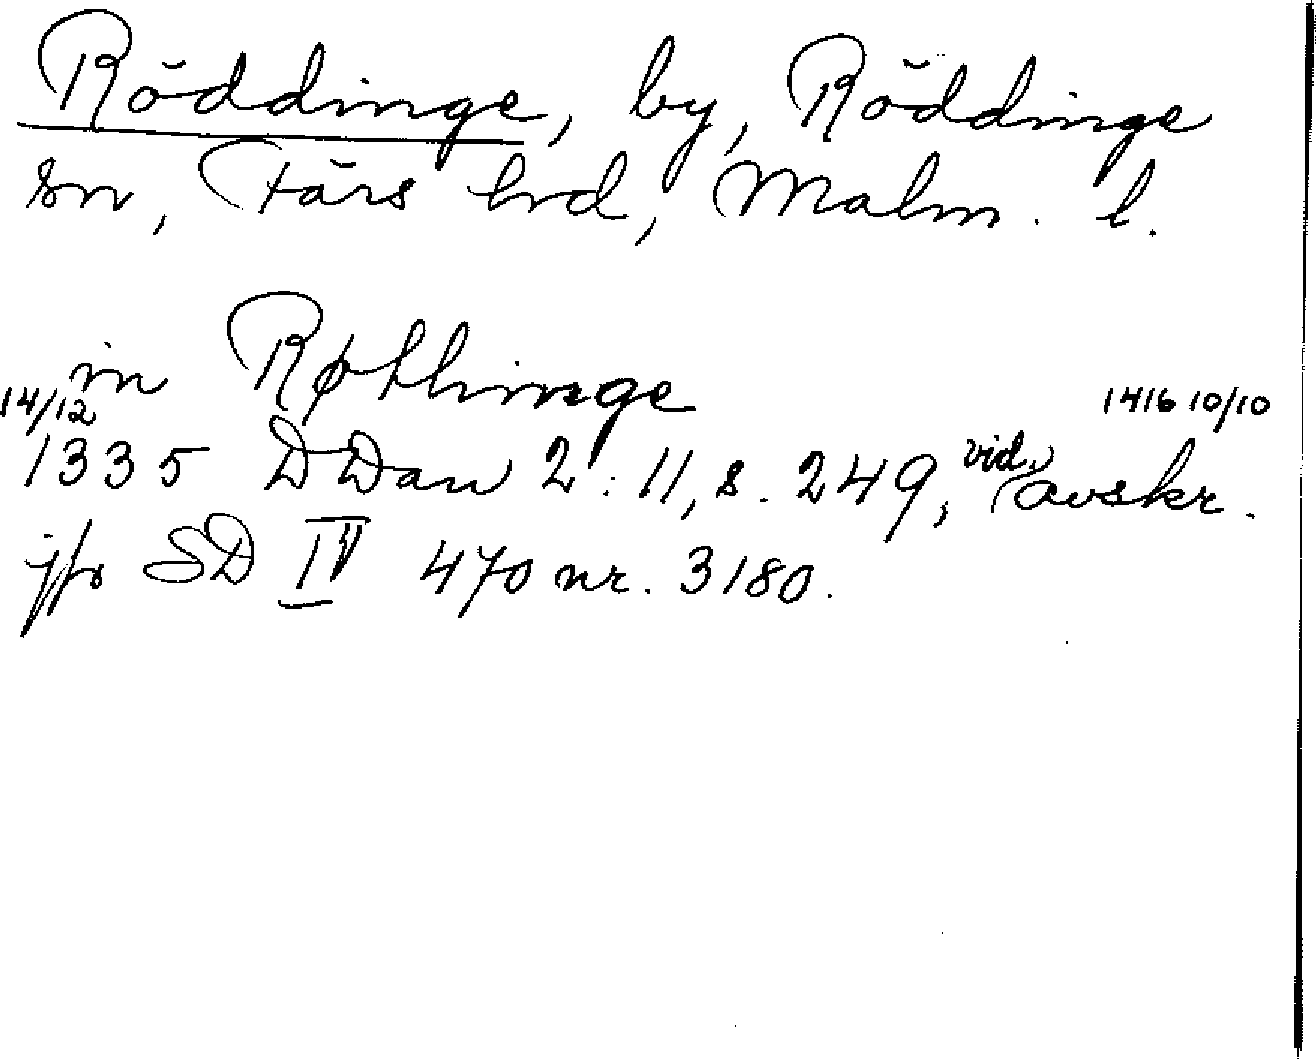 Röddinge, by, Röddinge
sn, Färs hrd, Malm. l.
in Røthinge
14/12 1416 10/10
1335 DDan 2:11, s. 249, vid. avskr.
jfr SD IV 470 nr. 3180.